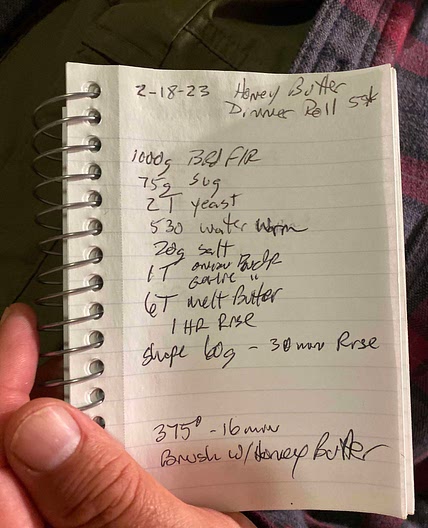 2-18-23 Honey Butter
Dinner Roll 5✯
1000g Brd Flr
75g Sug
2T yeast
530 water warm
20g salt
1T onion Powdr
garlic "
6T melt Butter
1 HR Rise
shape 60g - 30 min Rise
375° - 16 min
Brush w/Honey Butter